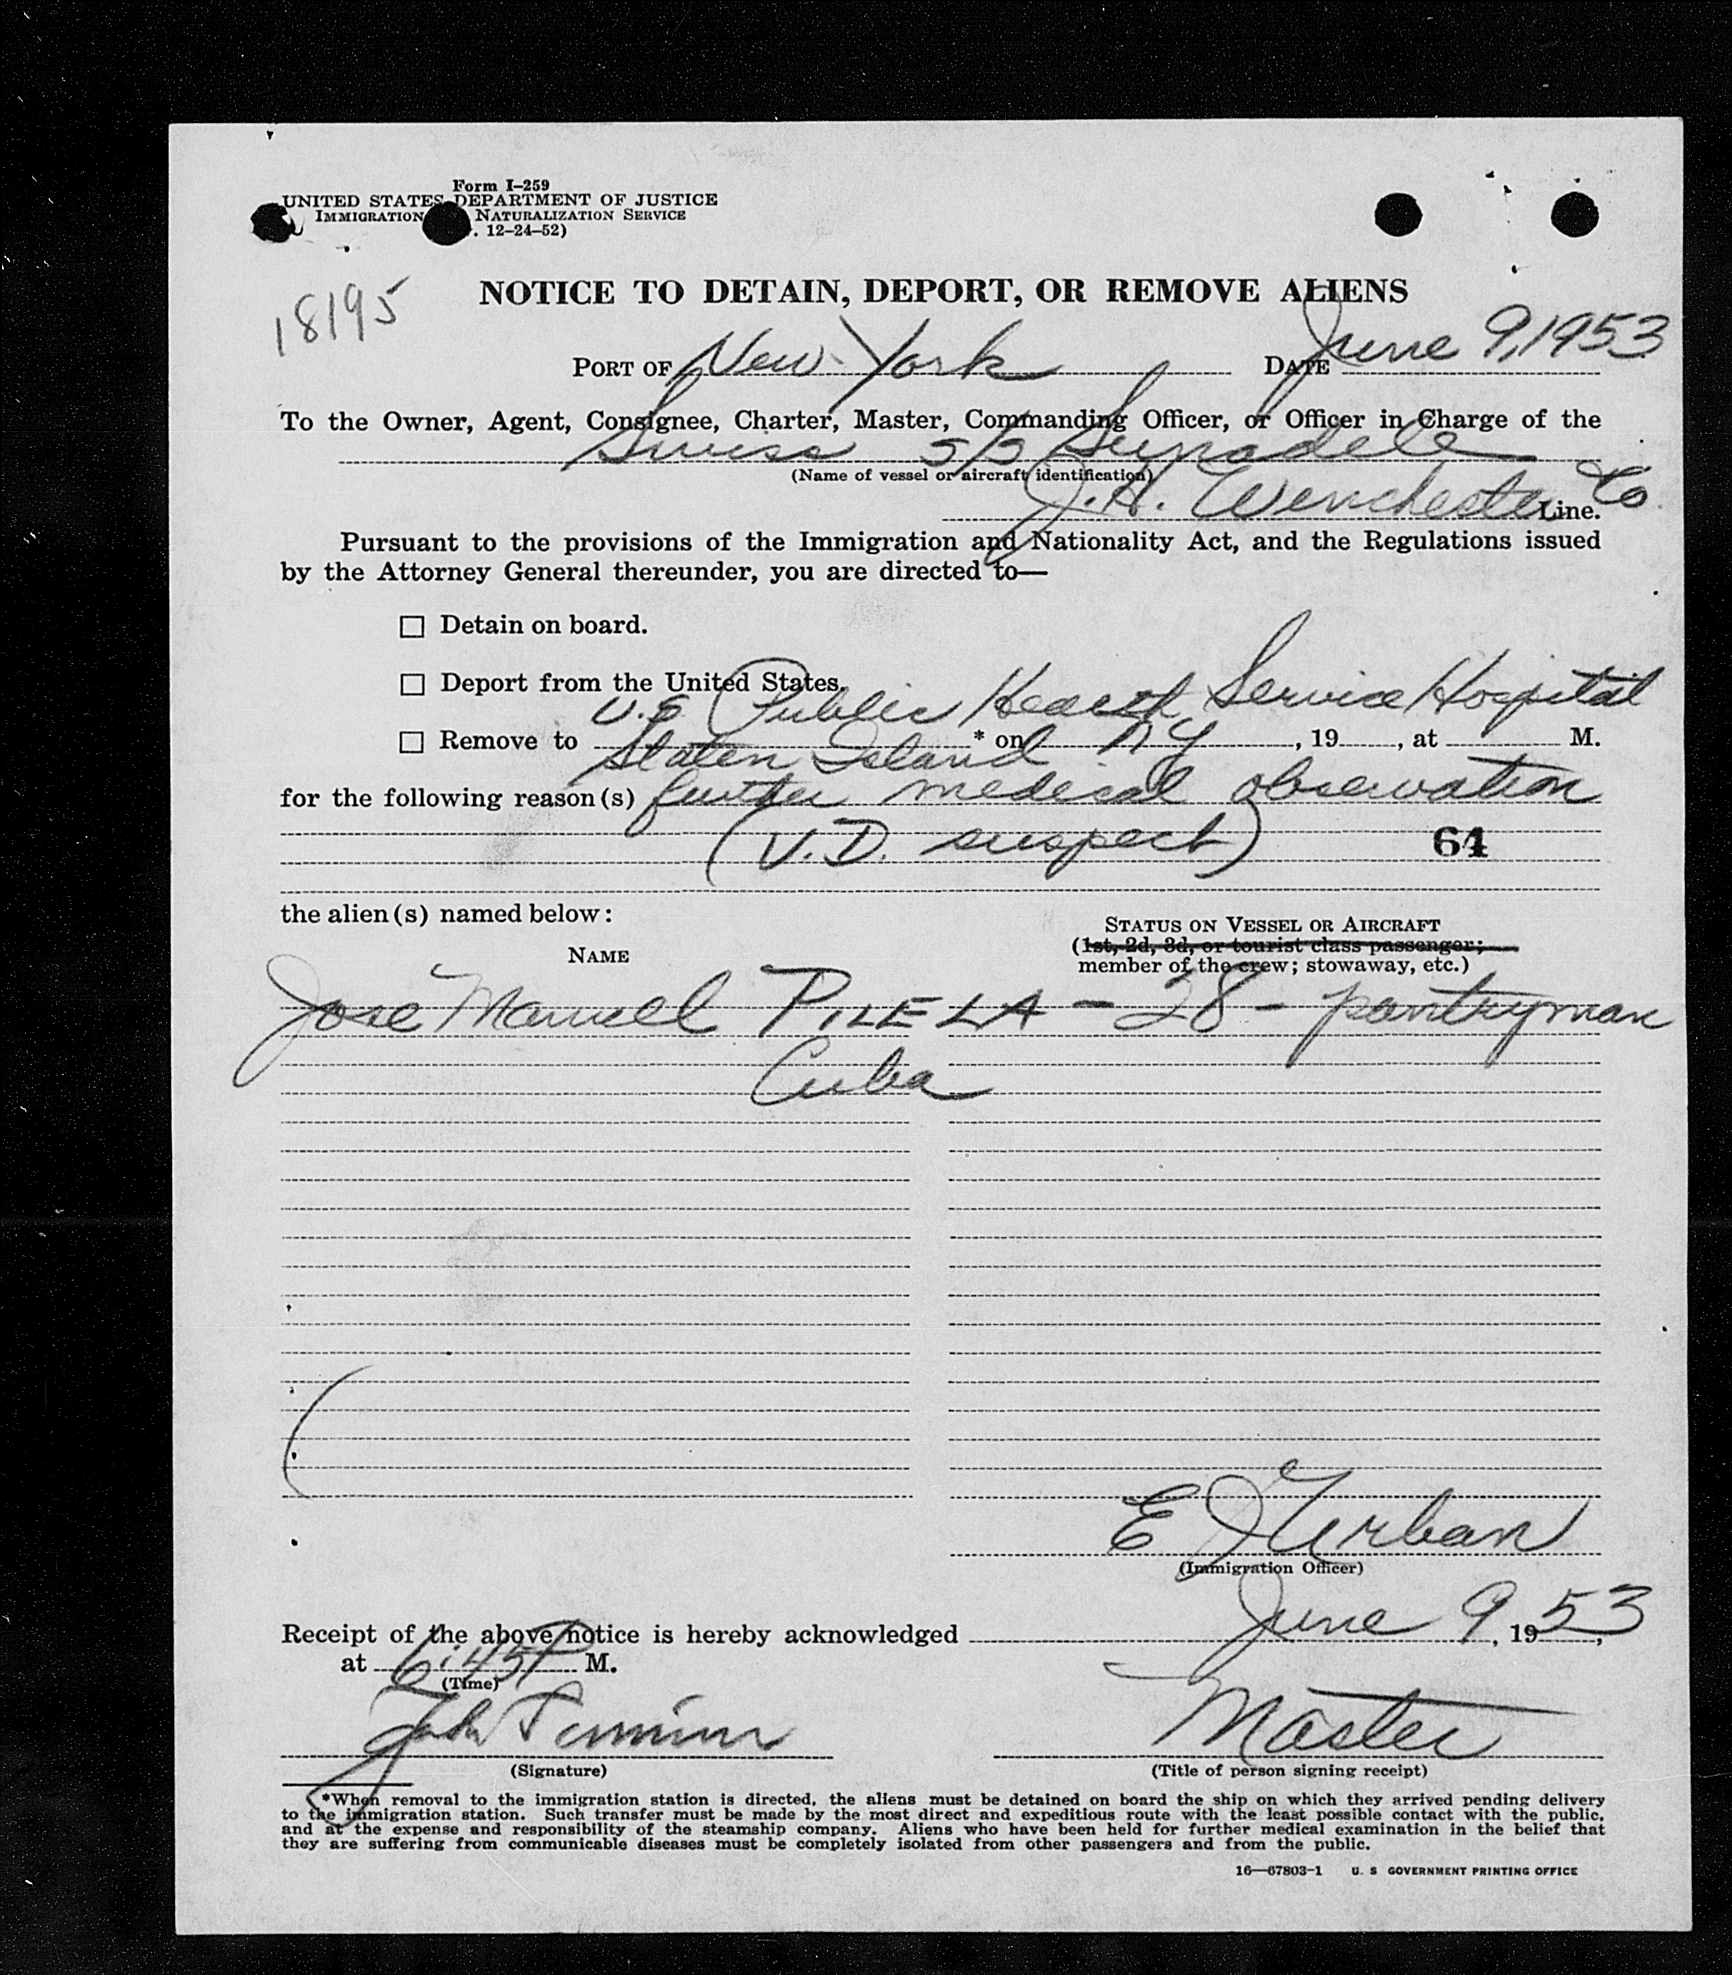 Form I-259
UNITED STATES DEPARTMENT OF JUSTICE
IMMIGRATION NATURALIZATION SERVICE
12-24-52)
18195
NOTICE TO DETAIN, DEPORT, OR REMOVE ALIENS
PORT OF New York DATE June 9, 1953
To the Owner, Agent, Consignee, Charter, Master, Commanding Officer, or Officer in Charge of the
Swiss S/S
(Name of vessel or aircraft identification)
J. H. Winchester Co Line.
Pursuant to the provisions of the Immigration and Nationality Act, and the Regulations issued
by the Attorney General thereunder, you are directed to—
☐ Detain on board.
☐ Deport from the United States.
U.S. Public Health Service Hospital
☐ Remove to * on , 19 , at M.
Staten Island NY
for the following reason(s) further medical observation
(V.D. suspect) 64
the alien(s) named below:
STATUS ON VESSEL OR AIRCRAFT
(1st, 2d, 3d, or tourist class passenger;
NAME
member of the crew; stowaway, etc.)
Jose Manuel PILELA - 28 - pantryman
Cuba
E J Urban
(Immigration Officer)
Receipt of the above notice is hereby acknowledged June 9, 1953,
at 6:45 P M.
(Time)
John Master
(Signature) (Title of person signing receipt)
*When removal to the immigration station is directed, the aliens must be detained on board the ship on which they arrived pending delivery
to the immigration station. Such transfer must be made by the most direct and expeditious route with the least possible contact with the public,
and at the expense and responsibility of the steamship company. Aliens who have been held for further medical examination in the belief that
they are suffering from communicable diseases must be completely isolated from other passengers and from the public.
16—67803-1 U. S GOVERNMENT PRINTING OFFICE